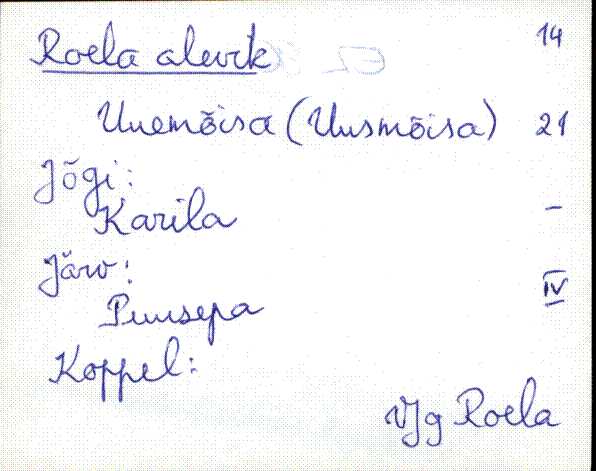 Roela alevik 14
Uuemõisa (Uusmõisa) 21
Jõgi:
Karila –
Järv:
Puusepa IV
Koppel:
VJg Roela